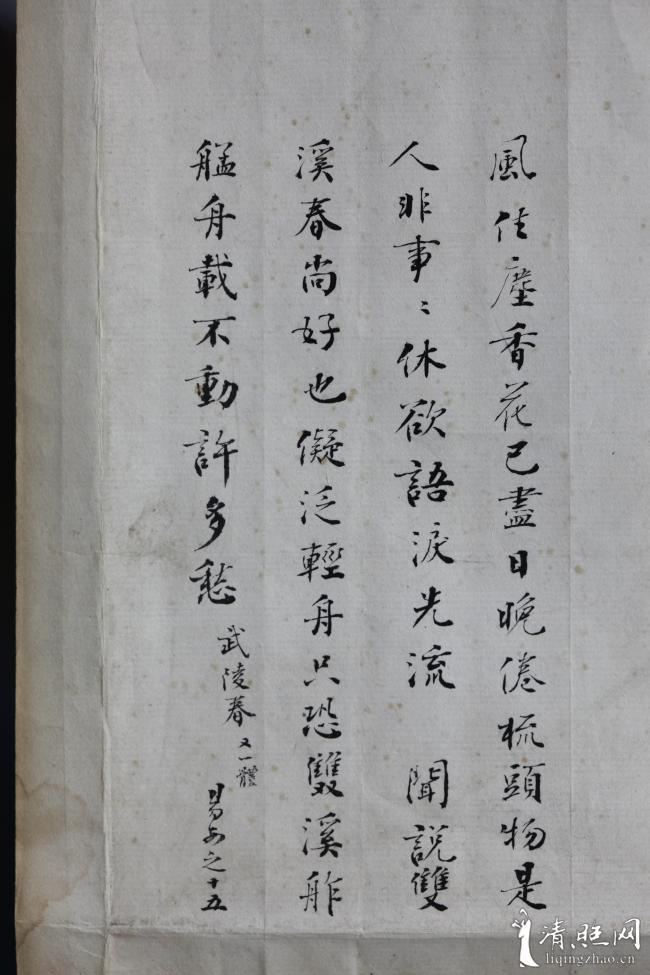 風住塵香花已盡日晚倦梳頭物是
人非事〻休欲語淚先流 聞説雙
溪春尚好也儗泛輕舟只恐雙溪舴
艋舟載不動許多愁
武陵春 又一體
易安之十五
清照网
liqingzhao.cn